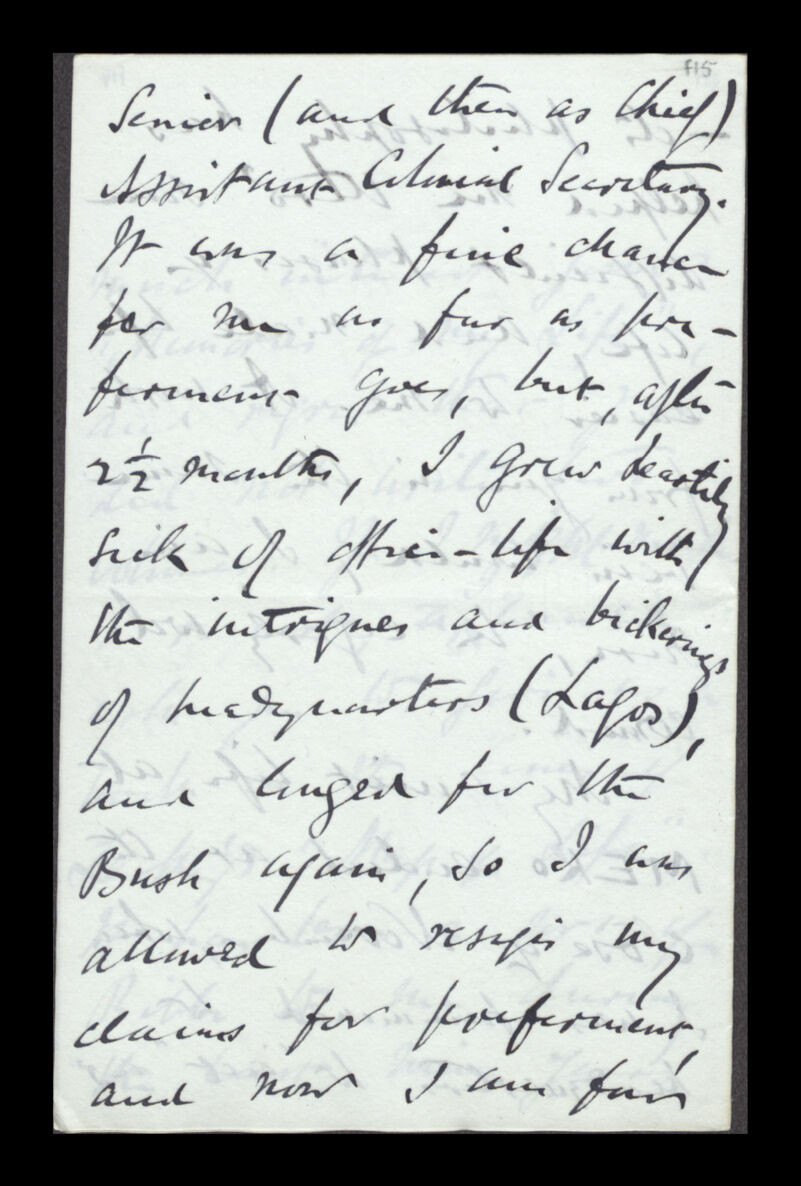 f15
Senior (and then as Chief)
Assistant Colonial Secretary.
It was a fine chance
for me as far as pre-
ferment goes, but, after
2½ months, I grew heartily
sick of office-life with
the intrigues and bickerings
of headquarters (Lagos),
and longed for the
Bush again, so I was
allowed to resign my
claims for preferment,
and now I am